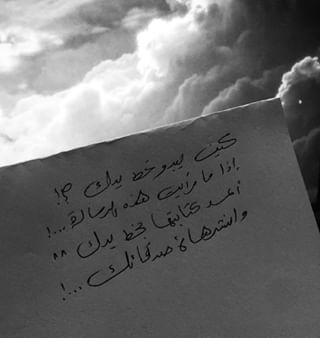 كيف يبدو خط يدك ؟!
إذا ما قرأت هذه الرسالة...!
أعد كتابتها بخط يدك ^^
وانشرها لأصدقائك...!